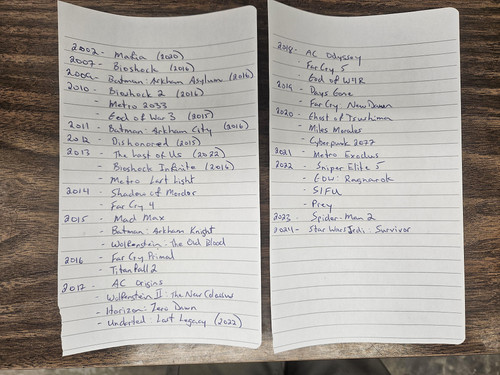 2002 - Mafia (2020)
2007 - Bioshock (2016)
2009 - Batman: Arkham Asylum (2016)
2010 - Bioshock 2 (2016)
- Metro 2033
- God of War 3 (2015)
2011 - Batman: Arkham City (2016)
2012 - Dishonored (2015)
2013 - The Last of Us (2022)
- Bioshock Infinite (2016)
- Metro Last Light
2014 - Shadow of Mordor
- Far Cry 4
2015 - Mad Max
- Batman: Arkham Knight
- Wolfenstein: the Old Blood
2016 - Far Cry Primal
- Titanfall 2
2017 - AC Origins
- Wolfenstein II: The New Colossus
- Horizon: Zero Dawn
- Uncharted: Lost Legacy (2022)
2018 - AC Odyssey
- Far Cry 5
- God of W4R
2019 - Days Gone
- Far Cry. New Dawn
2020 - Ghost of Tsushima
- Miles Morales
- Cyberpunk 2077
2021 - Metro Exodus
2022 - Sniper Elite 5
- GOW: Ragnarok
- SIFU
- Prey
2023 - Spider-Man 2
2024 - Star Wars Jedi: Survivor